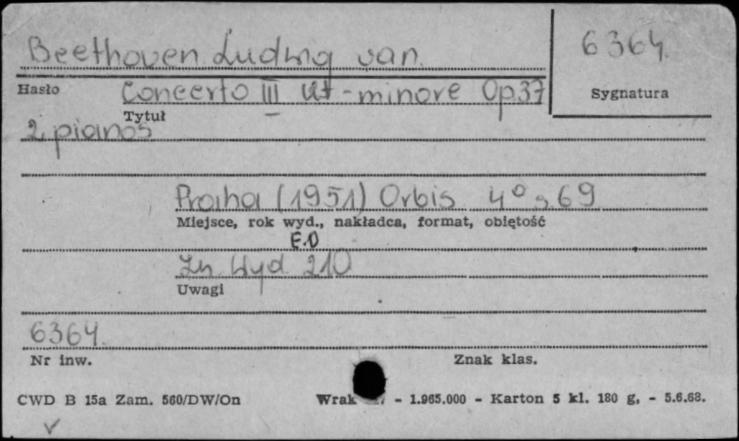 Beethoven Ludwig van.
6364.
Hasło
Sygnatura
Concerto III Ut-minore Op 37
Tytuł
2 pianos
Praha (1951) Orbis 4° s 69
Miejsce, rok wyd., nakładca, format, objętość
E.O
Zn Wyd 210
Uwagi
6364.
Nr inw.
Znak klas.
CWD B 15a Zam. 560/DW/On
- 1.965.000 - Karton 5 kl. 180 g, - 5.6.68.